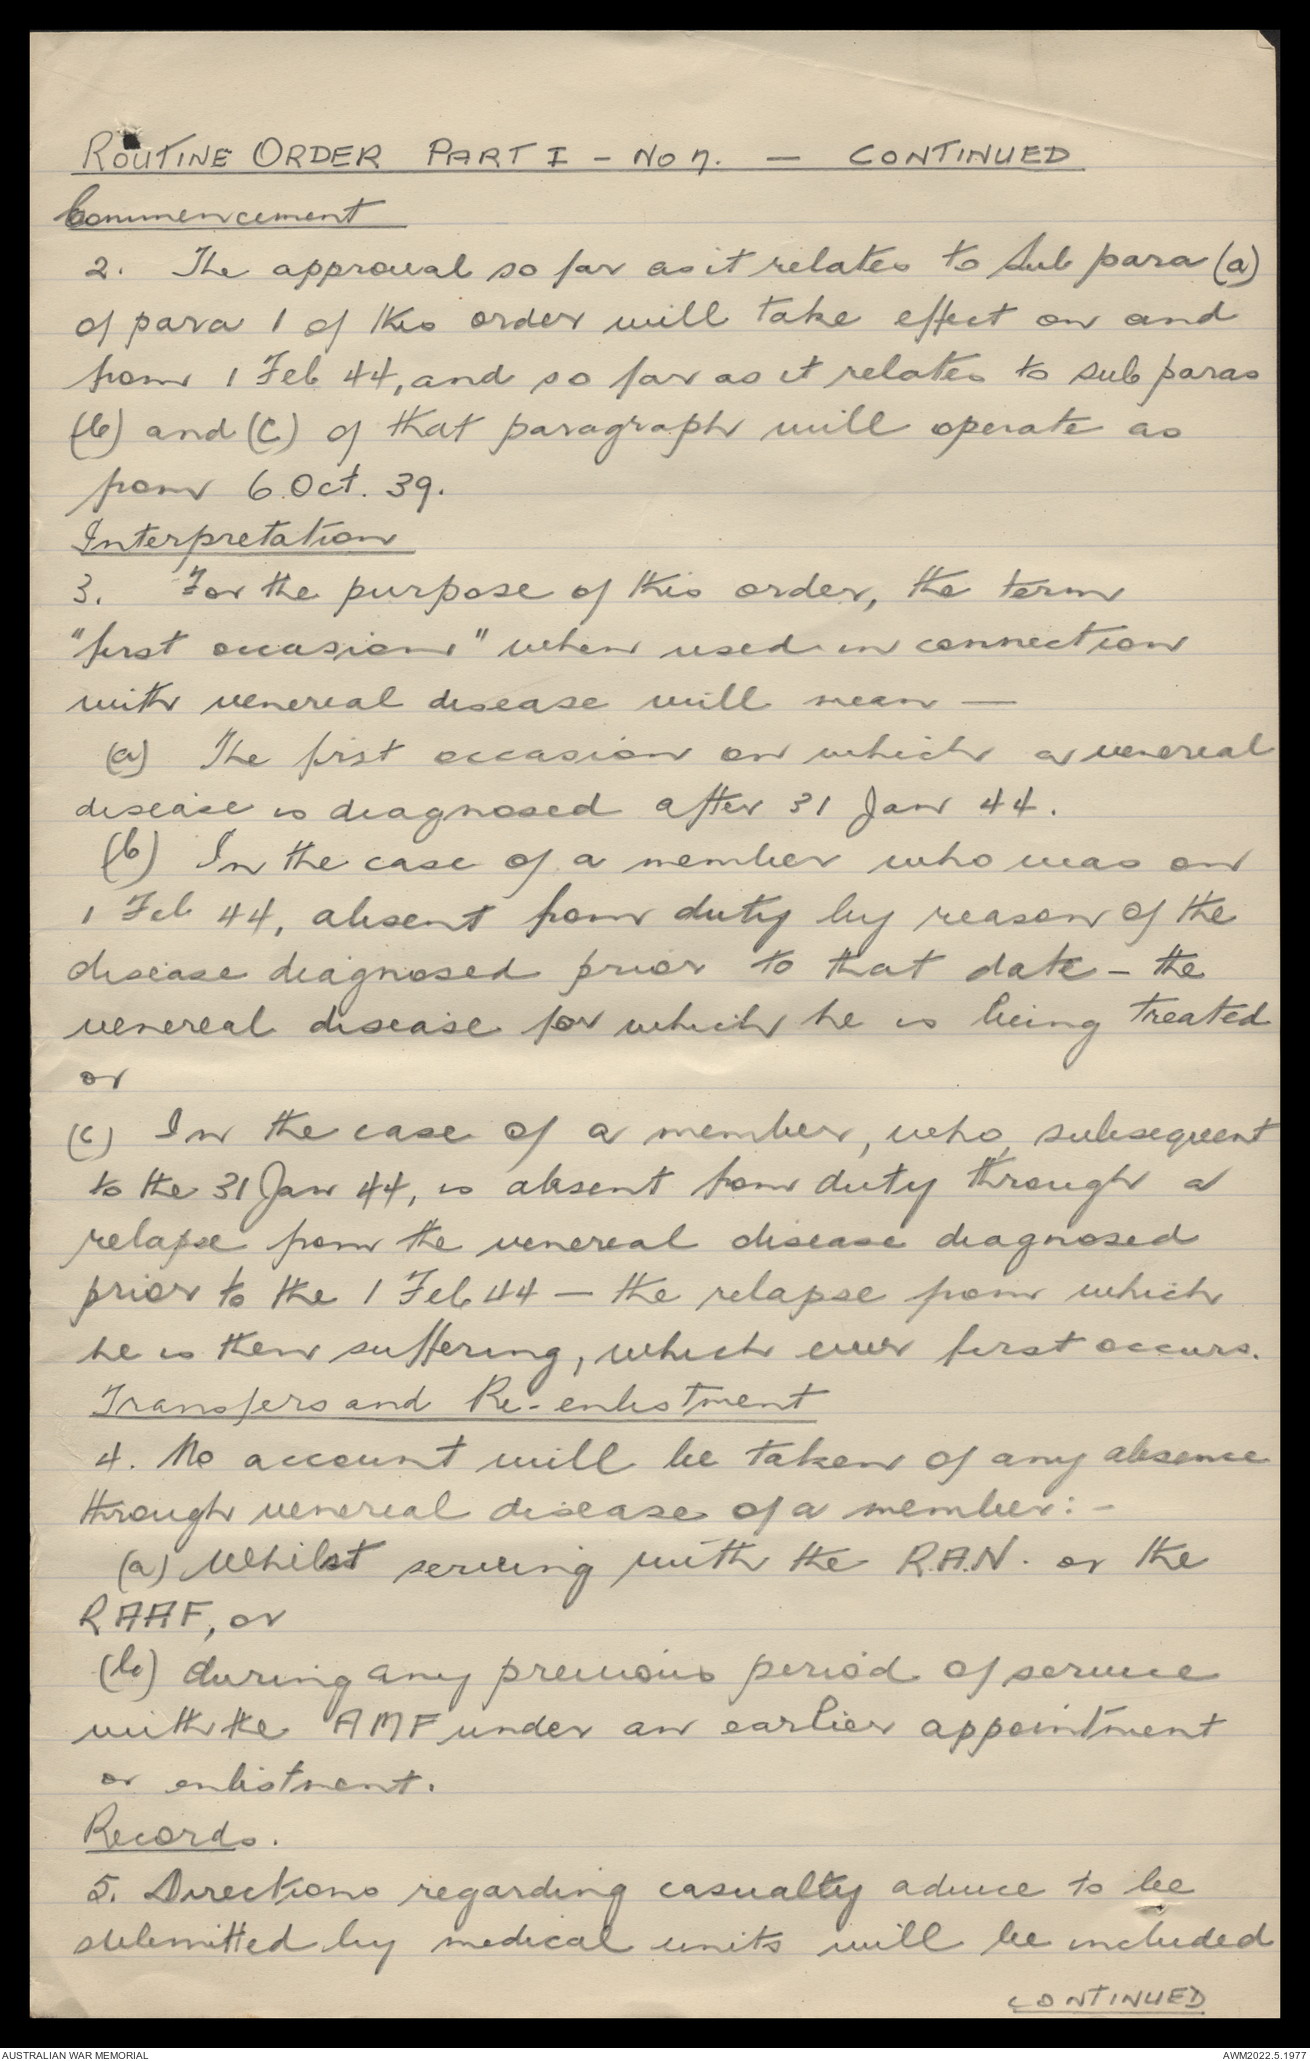 ROUTINE ORDER PART I - No 7. - CONTINUED
Commencement
2. The approval so far as it relates to Sub para (a)
of para 1 of this order will take effect on and
from 1 Feb 44, and so far as it relates to sub paras
(b) and (c) of that paragraph will operate as
from 6 Oct. 39.
Interpretation
3. For the purpose of this order, the term
"first occasion" when used in connection
with venereal disease will mean —
(a) The first occasion on which a venereal
disease is diagnosed after 31 Jan 44.
(b) In the case of a member who was on
1 Feb 44, absent from duty by reason of the
disease diagnosed prior to that date - the
venereal disease for which he is being treated
or
(c) In the case of a member, who, subsequent
to the 31 Jan 44, is absent from duty through a
relapse from the venereal disease diagnosed
prior to the 1 Feb 44 — the relapse from which
he is then suffering, which ever first occurs.
Transfers and Re-enlistment
4. No account will be taken of any absence
through venereal disease of a member:-
(a) Whilst serving with the R.A.N. or the
RAAF, or
(b) during any previous period of service
with the AMF under an earlier appointment
or enlistment.
Records.
5. Directions regarding casualty advice to be
submitted by medical units will be included
CONTINUED
AUSTRALIAN WAR MEMORIAL
AWM2022.5.1977